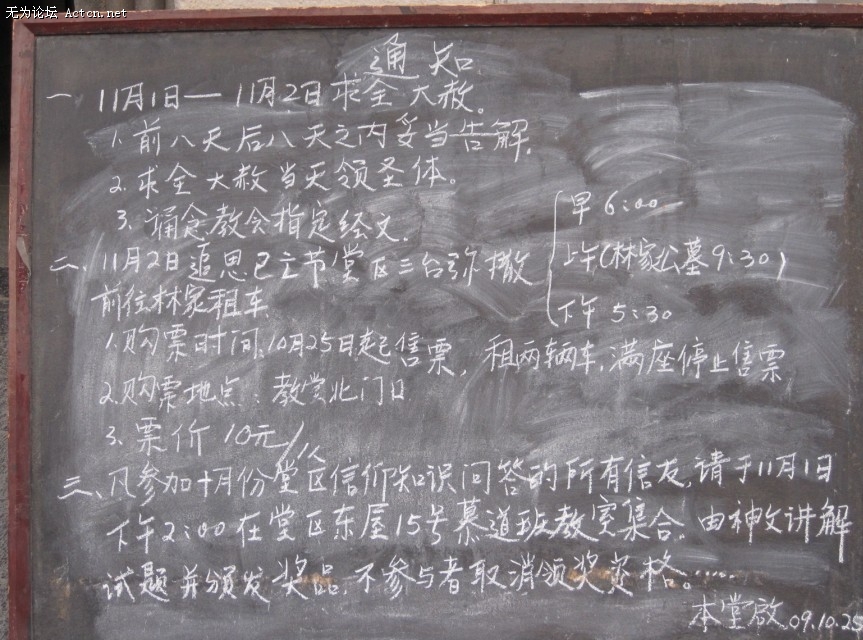 无为论坛 Actcn.net
通知
一 11月1日—11月2日求全大赦。
1. 前八天后八天之内妥当告解.
2. 求全大赦当天领圣体。
3. 诵念教会指定经文.
二、11月2日追思已亡节堂区三台弥撒
早 6:00
上午(林家公墓9:30)
下午 5:30
前往林家租车
1. 购票时间:10月25日起售票, 租两辆车,满座停止售票
2. 购票地点:教堂北门口
3. 票价 10元/人
三、凡参加十月份堂区信仰知识问答的所有信友,请于11月1日
下午2:00在堂区东屋15号慕道班教室集合。由神父讲解
试题并颁发奖品,不参与者取消领奖资格。……
本堂啟.09.10.25